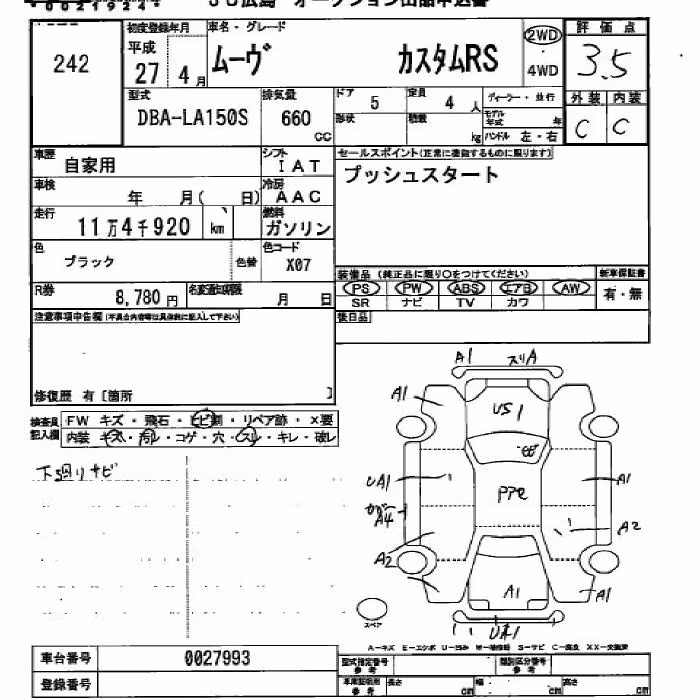 JU広島 オークション出品申込書
242
初度登録年月
平成
27 4月
車名・グレード
ムーヴ カスタムRS
2WD
4WD
評価点
3.5
型式
DBA-LA150S
排気量
660 cc
ドア 5
定員 4 人
ディーラー・並行
形状
積載 kg
モデル年式 年
ハンドル 左・右
外装 内装
C C
車歴 自家用
シフト IAT
セールスポイント(正常に機能するものに限ります)
プッシュスタート
車検 年 月( 日)
冷房 AAC
走行 11万4千920 km
燃料 ガソリン
色 ブラック
色替
色コード X07
装備品 (純正品に限り○をつけてください)
新車保証書
PS PW ABS エアB AW
有・無
SR ナビ TV カワ
R券 8,780円
名変通知期限 月 日
注意事項申告欄(不具合内容等は具体的に記入して下さい)
後日品
修復歴 有〔箇所 〕
検査員記入欄
FW キズ・飛石・ヒビ割・リペア跡・X要
内装 キズ・汚レ・コゲ・穴・スレ・キレ・破レ
下廻りサビ
A1 スリA
A1
US1
UA1
PPセ
A1
A4
A2
A2
A1
A1
UA1
スペア
A-キズ E-エクボ U-凹み W-補修跡 S-サビ C-腐食 XX-交換済
車台番号 0027993
登録番号
型式指定番号 参考
類別区分番号 参考
車庫証明用 参考
長さ cm 幅 cm 高さ cm